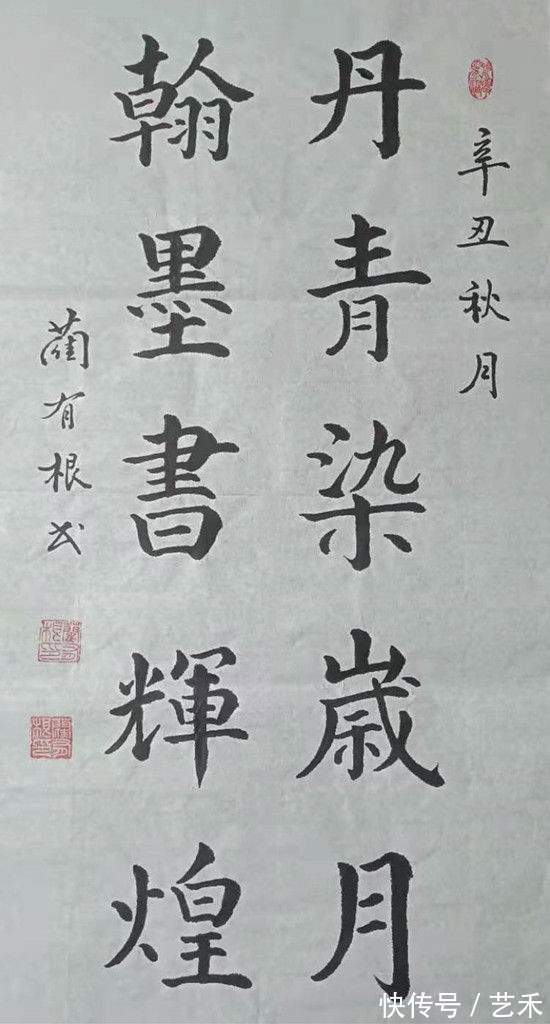 辛丑秋月
丹青染歲月
翰墨書輝煌
蔺有根书
快传号 / 艺禾